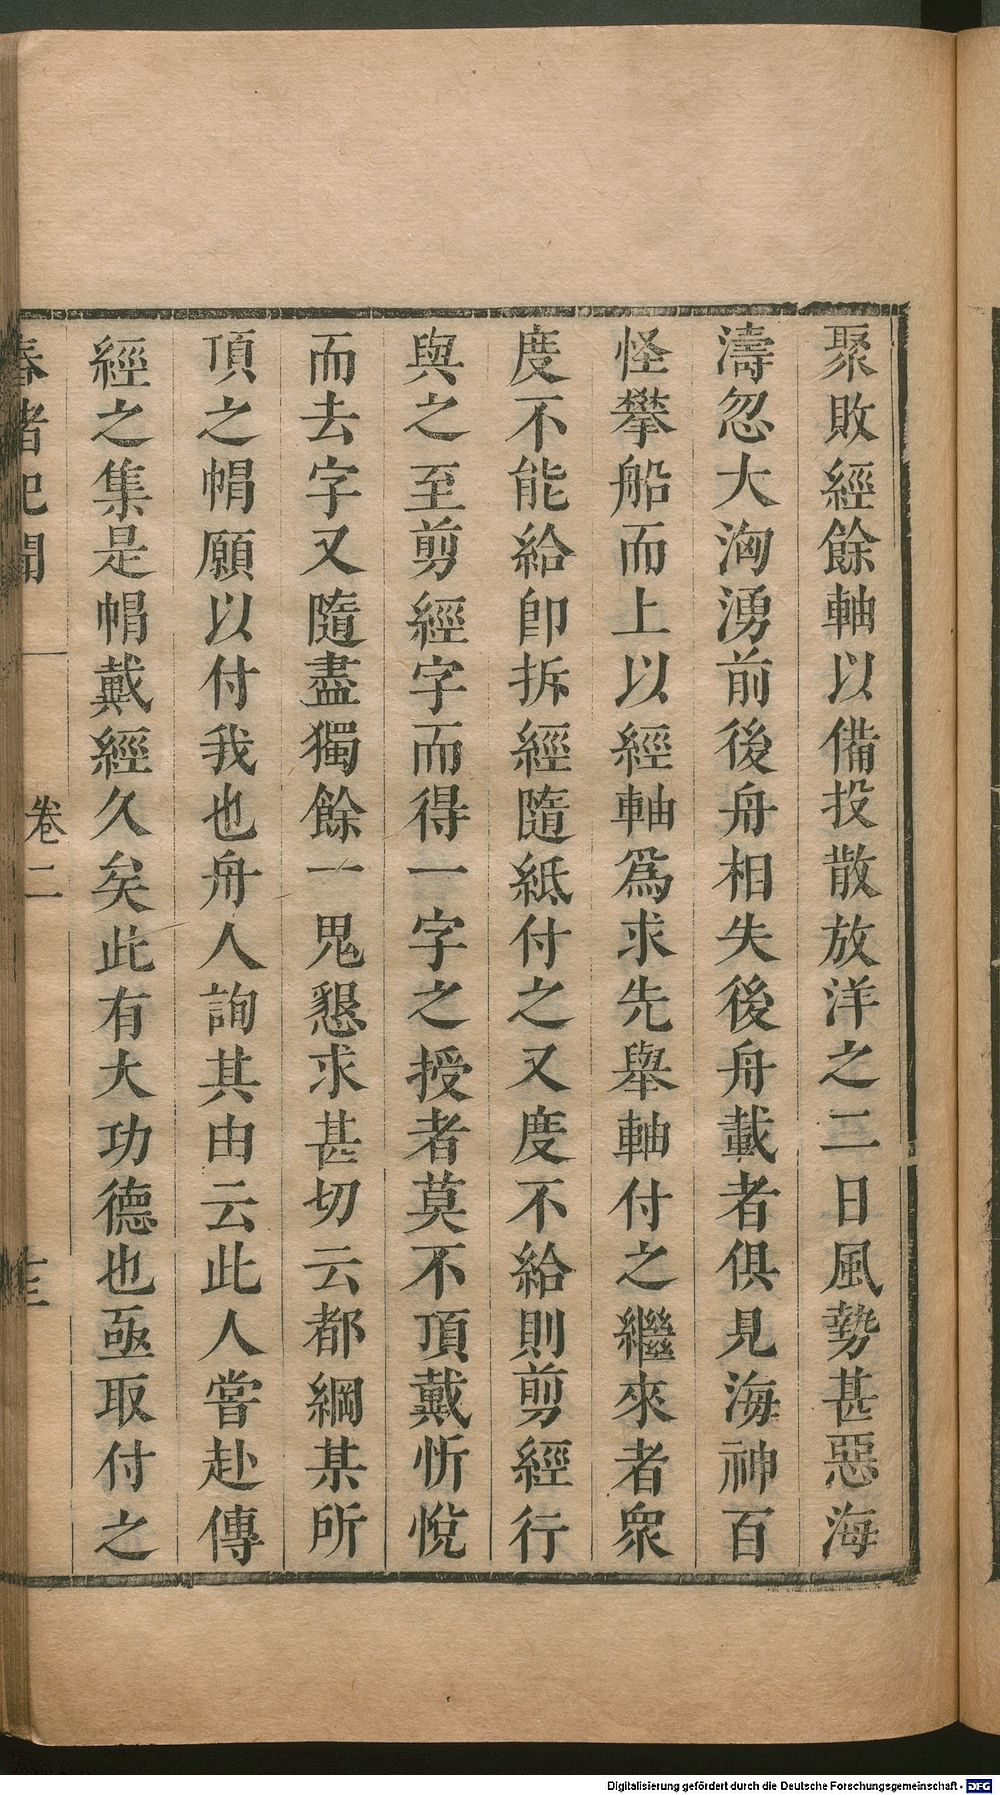 聚敗經餘軸以備投散放洋之二日風勢甚惡海
濤忽大洶湧前後舟相失後舟載者俱見海神百
怪攀船而上以經軸爲求先舉軸付之繼來者衆
度不能給卽拆經隨紙付之又度不給則剪經行
與之至剪經字而得一字之授者莫不頂戴忻悅
而去字又隨盡獨餘一鬼懇求甚切云都綱某所
頂之帽願以付我也舟人詢其由云此人嘗赴傳
經之集是帽戴經久矣此有大功德也亟取付之
春渚紀聞
卷二
Digitalisierung gefördert durch die Deutsche Forschungsgemeinschaft - DFG